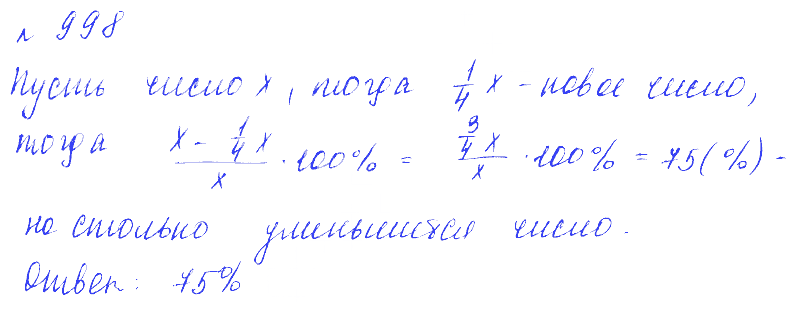 № 998
Пусть число x, тогда 1/4 x - новое число,
тогда (x - 1/4 x)/x · 100% = (3/4 x)/x · 100% = 75(%) -
на столько уменьшится число.
Ответ: 75%